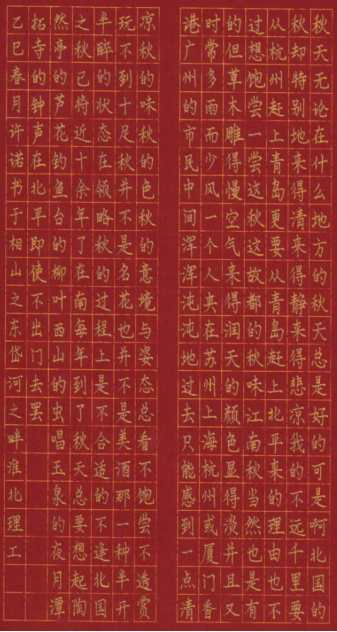 秋天无论在什么地方的秋天总是好的可是啊北国的
秋却特别地来得清来得静来得悲凉我的不远千里要
从杭州赶上青岛更要从青岛赶上北平来的理由也不
过想饱尝一尝这秋这故都的秋味江南秋当然也是有
的但草木雕得慢空气来得润天的颜色显得淡并且又
时常多雨而少风一个人夹在苏州上海杭州或厦门香
港广州的市民中间浑浑沌沌地过去只能感到一点清
凉秋的味秋的色秋的意境与姿态总看不饱尝不透赏
玩不到十足秋并不是名花也并不是美酒那一种半开
半醉的状态在领略秋的过程上是不合适的不逢北国
之秋已将近十余年了在南每年到了秋天总要想起陶
然亭的芦花钓鱼台的柳叶西山的虫唱玉泉的夜月潭
拓寺的钟声在北平即使不出门去罢
乙巳春月许诺书于相山之东岱河之畔淮北理工